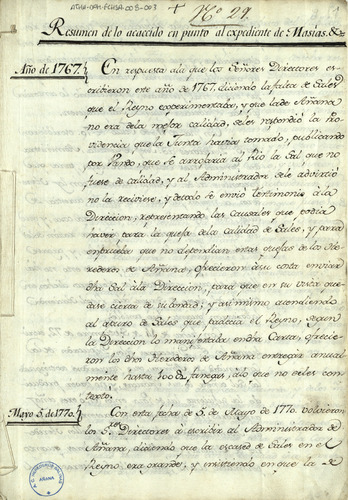 ATHA-DAH-FCHSA-008-003
+ Nº 29.
Resumen de lo acaecido en punto al expediente de Masias. &c
Año de 1767.
En respuesta ala que los Señores Directores es-
cribieron este año de 1767. diciendo la falta de Sales
que el Reyno experimentaba, y que la de Añana
no era de la mejor calidad, se les respondió la Pro-
videncia que la Junta havia tomado, publicando
por Vando, que se arrojaria al Rio la Sal que no
fuese de calidad, y al Administrador se le advirtió
no la reciviese, y de todo se envió testimonio à la
Direccion, representando las causales que podia
haver para la quexa de la calidad de Sales, y para
prueba que no dependian estas quejas de los He-
rederos de Añana, ofrecieron à su costa enviar
dha Sal à la Direccion, para que en su vista que-
dase cierta de su bondad; y asi mismo atendiendo
al apuro de Sales que padecia el Reyno, segun
la Direccion lo manifestaba en dha Carta, ofrecie-
ron los dhos Herederos de Añana entregar anual-
mente hasta fanegas, álo que no se les con-
textó.
Mayo 5. de 1770.
Con esta fecha de 5. de Mayo de 1770. volvieron
los Sres Directores à escribir al Administrador de
Añana, diciendo que la escased de Sales en el
Reyno era grande, y insistiendo en que la de
AÑANA